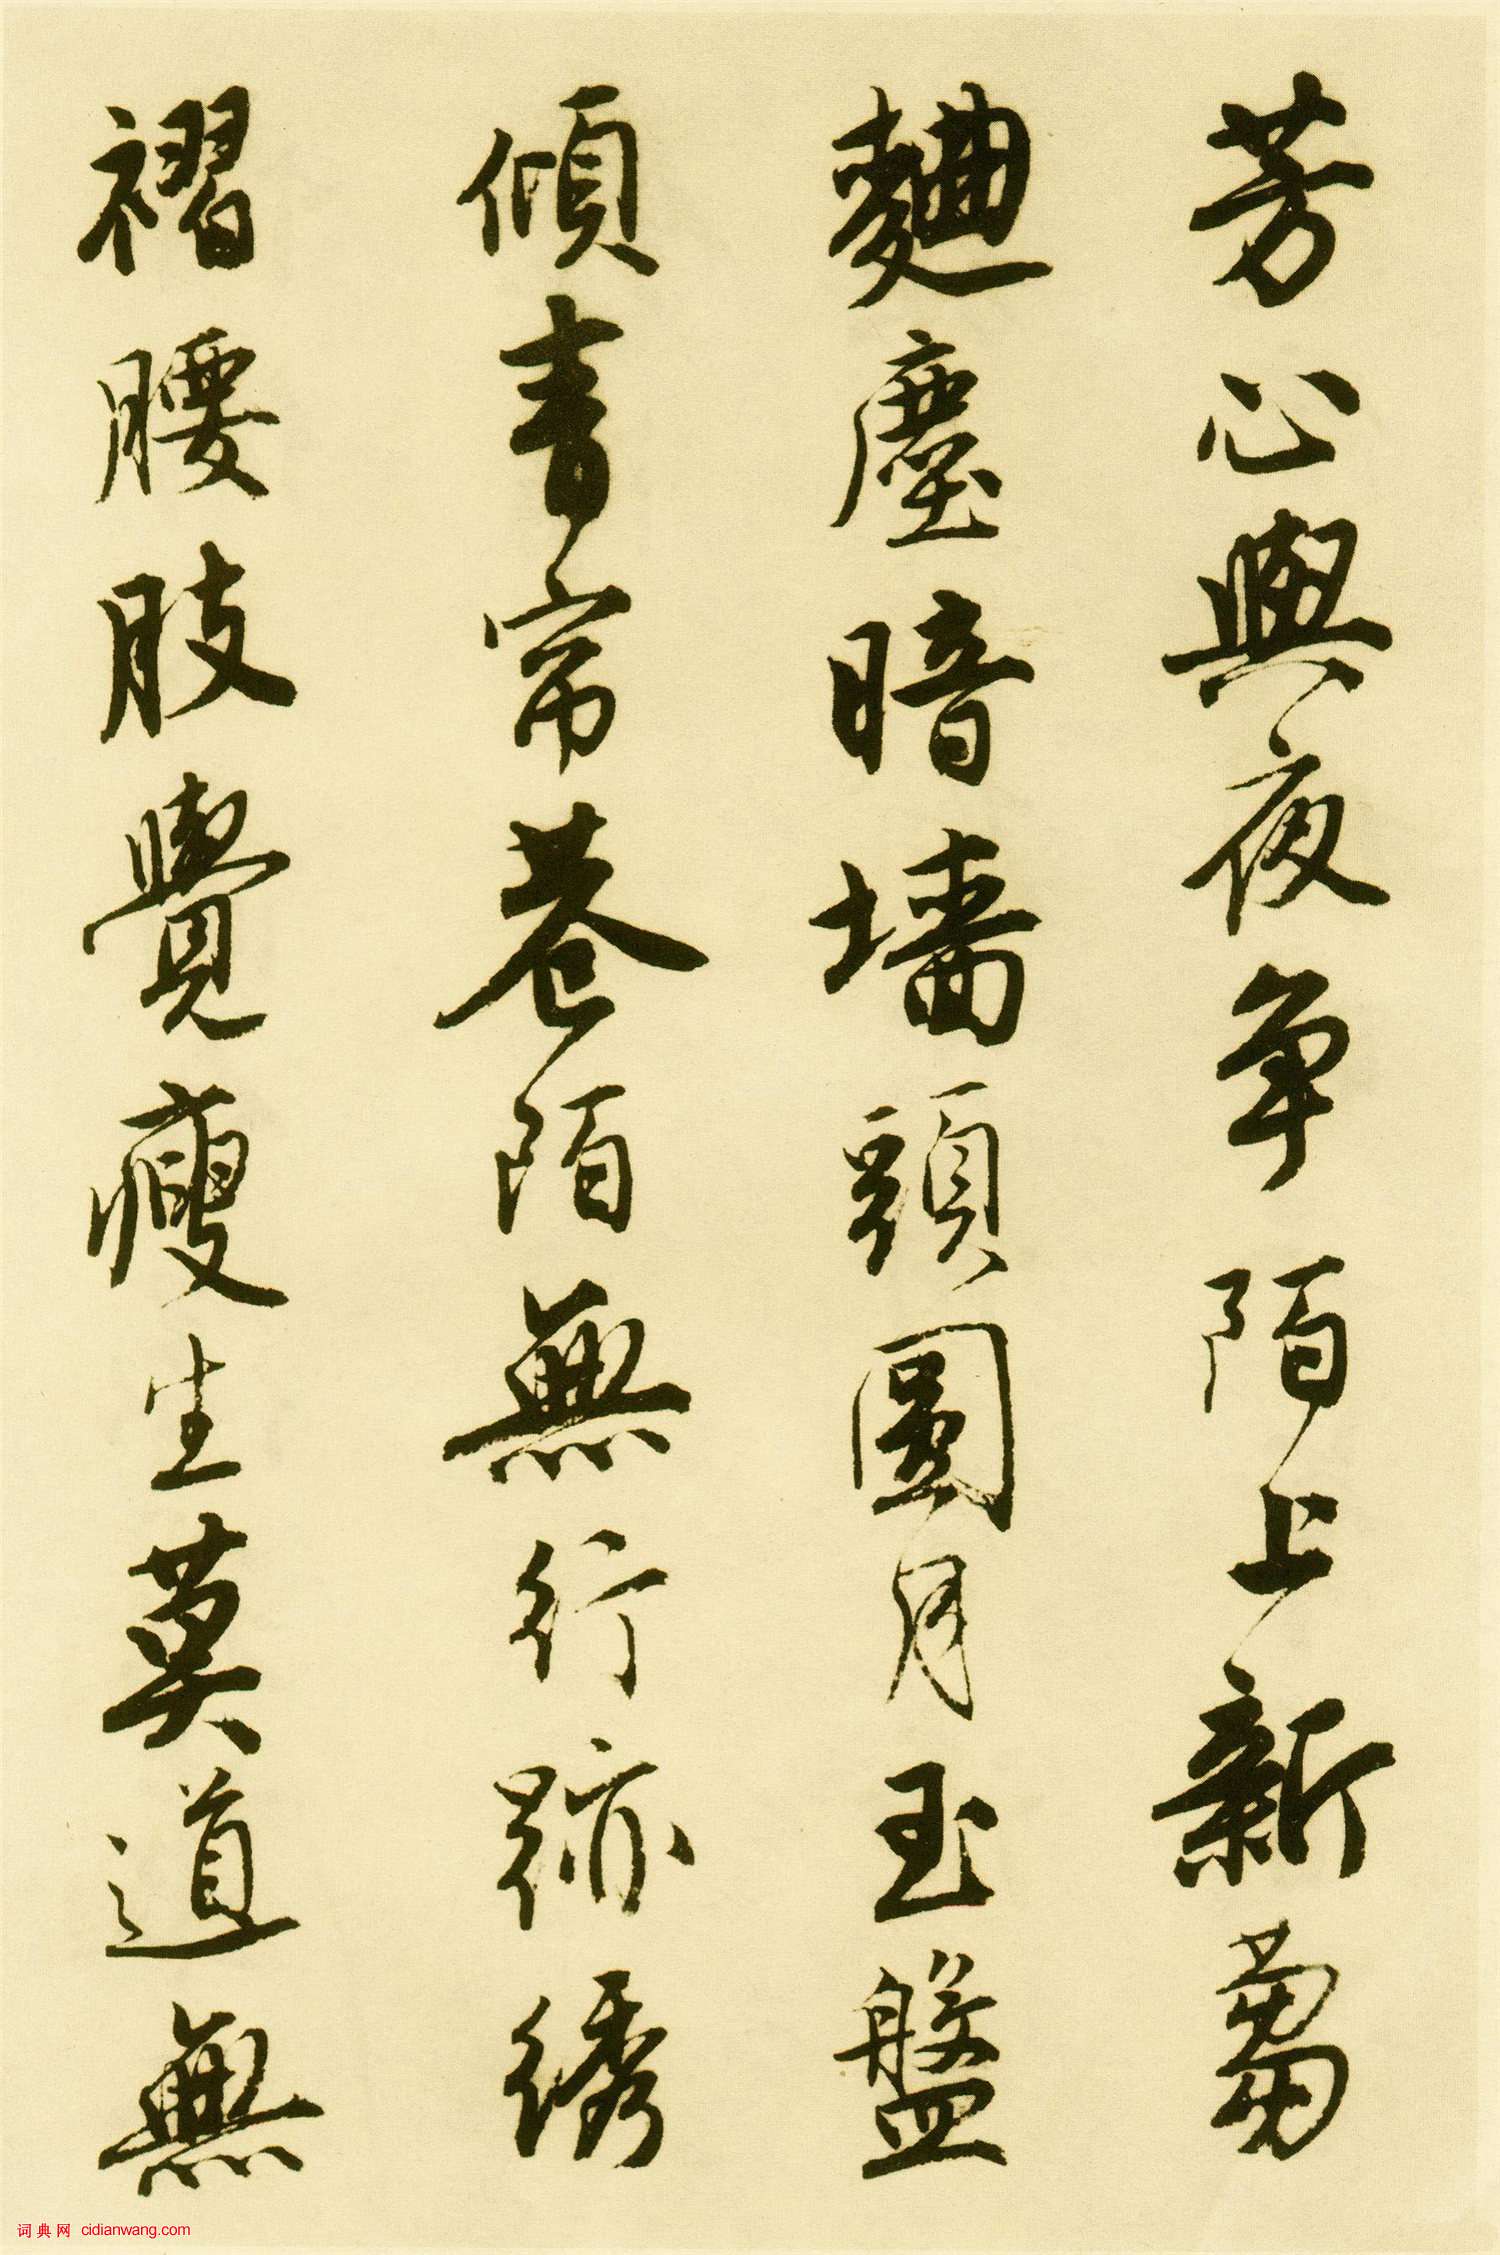 芳心與夜争陌上新蒭
麯塵暗墙頭圓月玉盤
傾青帘巷陌無行跡綉
褶腰肢覺瘦生莫道無
词典网 cidianwang.com